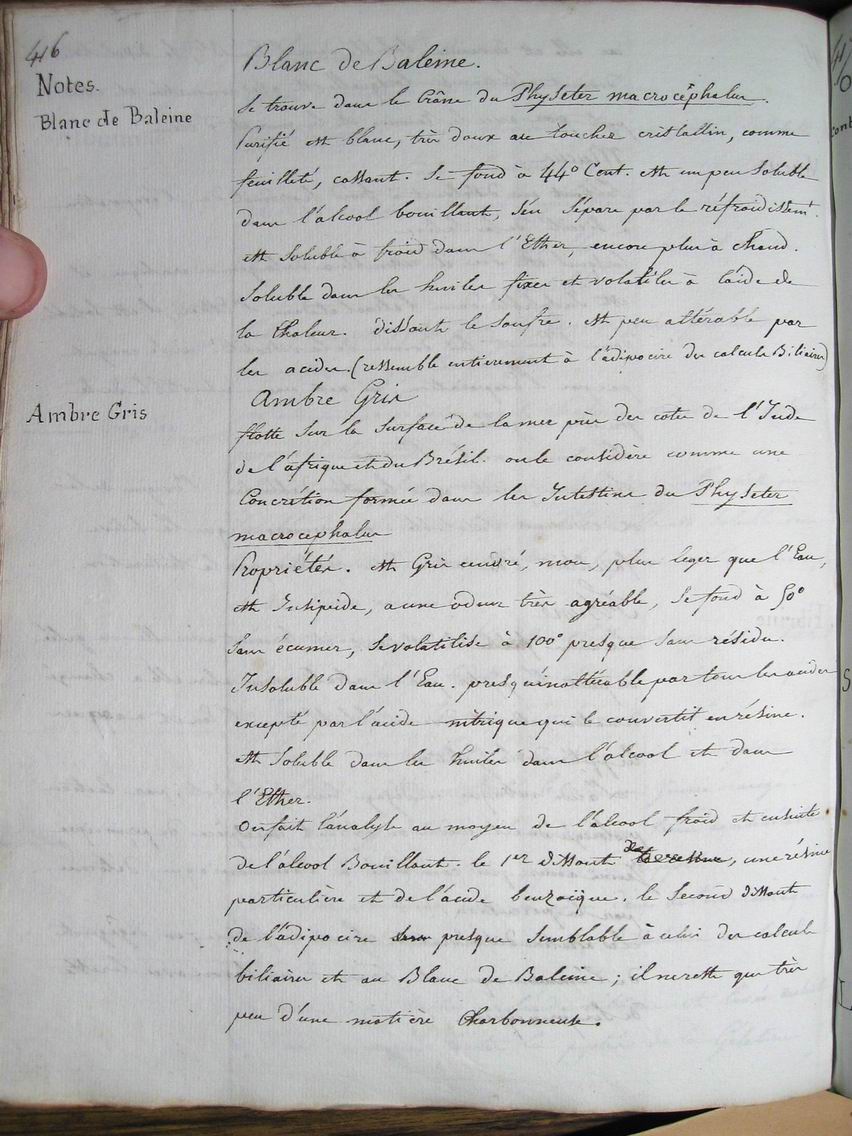 416
Notes.
Blanc de Baleine
Blanc de Baleine.
Se trouve dans le Crâne du Physeter macrocephalus.
Purifié est blanc, très doux au toucher cristallin, comme
feuilleté, cassant. Se fond à 44° Cent. est un peu Soluble
dans l'alcool bouillant, S'en Sépare par le réfroidissemt.
est Soluble à froid dans l'Ether, encore plus à chaud.
Soluble dans les huiles fixes et volatiles à l'aide de
la Chaleur. dissout le Soufre. est peu altérable par
les acides. (ressemble entierement à l'adipocire des calculs Biliaires)
Ambre Gris
Ambre Gris
flotte Sur la Surface de la mer près des cotes de l'Inde
de l'afrique et du Brésil. on le considère comme une
Concrétion formée dans les Intestins du Physeter
macrocephalus
Propriétés. est Gris cendré, mou, plus leger que l'Eau,
est Insipide, a une odeur très agréable, Se fond à 50°
Sans écumer, Se volatilise à 100° presque Sans résidu.
Insoluble dans l'Eau. presqu'inattérable par tous les acides
excepté par l'acide nitrique qui le convertit en résine.
est Soluble dans les huiles dans l'alcool et dans
l'Ether.
On fait l'analyse au moyen de l'alcool froid et ensuite
de l'alcool Bouillant. le 1er dissout la resine, une résine
particulière et de l'acide benzoïque. le Second dissout
de l'adipocire presque Semblable à celui des calculs
biliaires et au Blanc de Baleine ; il ne reste que très
peu d'une matière Charbonneuse.